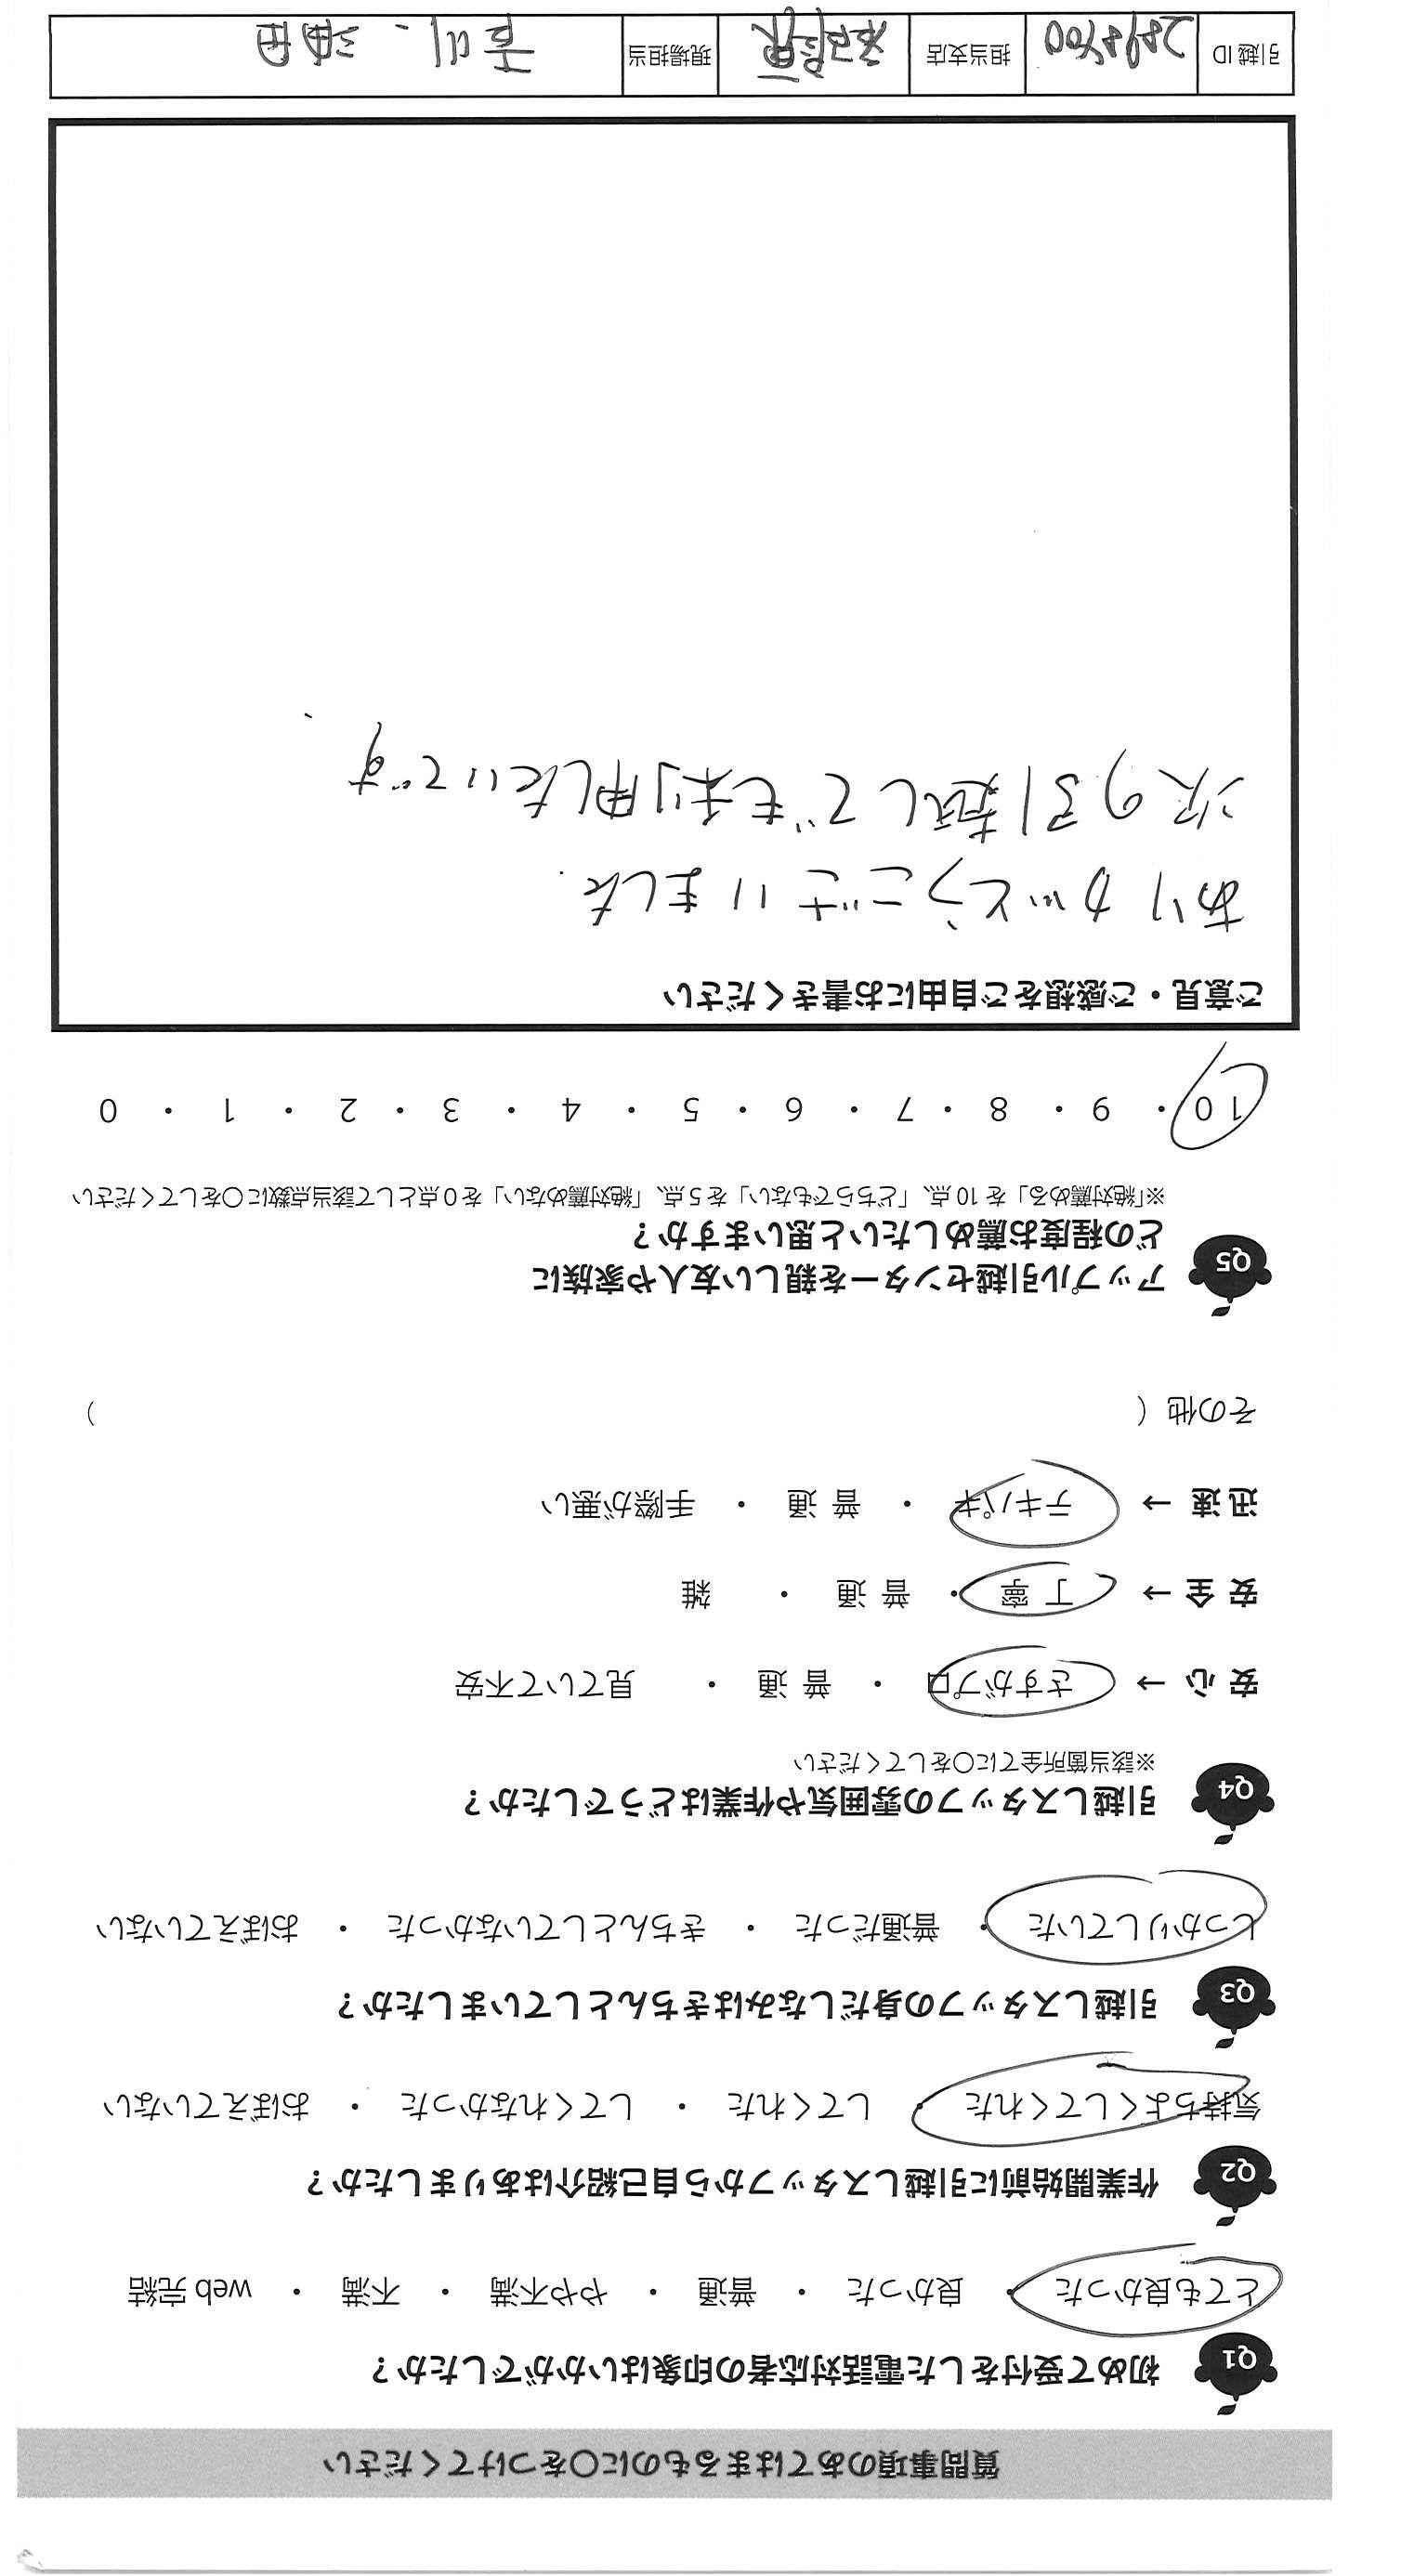 質問事項のあてはまるものに〇をつけてください
Q1 初めて受付をした電話対応者の印象はいかがでしたか？
とても良かった ・ 良かった ・ 普通 ・ やや不満 ・ 不満 ・ web 完結
Q2 作業開始前に引越しスタッフから自己紹介はありましたか？
気持ちよくしてくれた ・ してくれた ・ してくれなかった ・ おぼえていない
Q3 引越しスタッフの身だしなみはきちんとしていましたか？
しっかりしていた ・ 普通だった ・ きちんとしていなかった ・ おぼえていない
Q4 引越しスタッフの雰囲気や作業はどうでしたか？
※該当箇所全てに〇をしてください
安 心 → さすがプロ ・ 普 通 ・ 見ていて不安
安 全 → 丁 寧 ・ 普 通 ・ 雑
迅 速 → テキパキ ・ 普 通 ・ 手際が悪い
その他（ ）
Q5 アップル引越センターを親しい友人や家族に
どの程度お薦めしたいと思いますか？
※「絶対薦める」を 10 点、「どちらでもない」を 5 点、「絶対薦めない」を 0 点として該当点数に〇をしてください
10 ・ 9 ・ 8 ・ 7 ・ 6 ・ 5 ・ 4 ・ 3 ・ 2 ・ 1 ・ 0
ご意見・ご感想をご自由にお書きください
ありがとうございました.
次の引越しでも利用したいです.
引越 ID 担当支店 現場担当